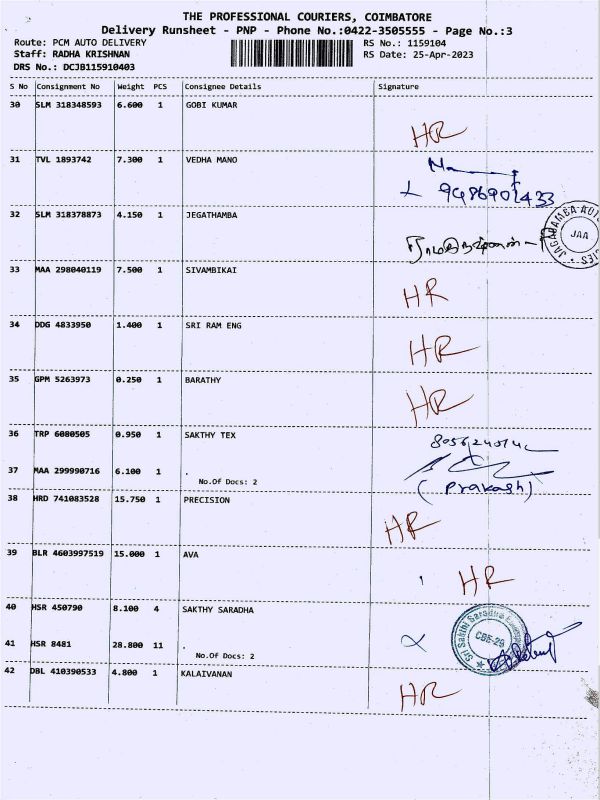 THE PROFESSIONAL COURIERS, COIMBATORE
Delivery Runsheet - PNP - Phone No.:0422-3505555 - Page No.:3
Route: PCM AUTO DELIVERY RS No.: 1159104
Staff: RADHA KRISHNAN RS Date: 25-Apr-2023
DRS No.: DCJB115910403
S No Consignment No Weight PCS Consignee Details Signature
30 SLM 318348593 6.600 1 GOBI KUMAR
HR
31 TVL 1893742 7.300 1 VEDHA MANO
32 SLM 318378873 4.150 1 JEGATHAMBA
JAA
33 MAA 298040119 7.500 1 SIVAMBIKAI
HR
34 DDG 4833950 1.400 1 SRI RAM ENG
HR
35 GPM 5263973 0.250 1 BARATHY
HR
36 TRP 6080505 0.950 1 SAKTHY TEX
37 MAA 299990716 6.100 1 .
No.Of Docs: 2
(Prakash)
38 HRD 741083528 15.750 1 PRECISION
HR
39 BLR 4603997519 15.000 1 AVA
HR
40 HSR 450790 8.100 4 SAKTHY SARADHA
CBE-29
41 HSR 8481 28.800 11 .
No.Of Docs: 2
42 DBL 410390533 4.800 1 KALAIVANAN
HR